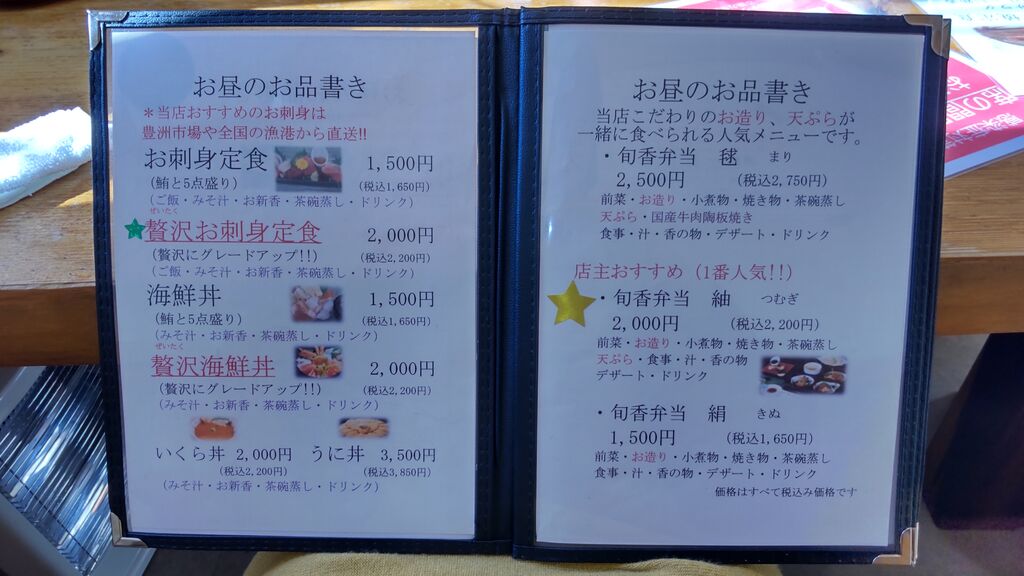 お昼のお品書き
＊当店おすすめのお刺身は
豊洲市場や全国の漁港から直送!!
お刺身定食 1,500円
(鮪と5点盛り) (税込1,650円)
(ご飯・みそ汁・お新香・茶碗蒸し・ドリンク)
ぜいたく
贅沢お刺身定食 2,000円
(贅沢にグレードアップ!!) (税込2,200円)
(ご飯・みそ汁・お新香・茶碗蒸し・ドリンク)
海鮮丼 1,500円
(鮪と5点盛り) (税込1,650円)
(みそ汁・お新香・茶碗蒸し・ドリンク)
ぜいたく
贅沢海鮮丼 2,000円
(贅沢にグレードアップ!!) (税込2,200円)
(みそ汁・お新香・茶碗蒸し・ドリンク)
いくら丼 2,000円 うに丼 3,500円
(税込2,200円) (税込3,850円)
(みそ汁・お新香・茶碗蒸し・ドリンク)
お昼のお品書き
当店こだわりのお造り、天ぷらが
一緒に食べられる人気メニューです。
・旬香弁当 毬 まり
2,500円 (税込2,750円)
前菜・お造り・小煮物・焼き物・茶碗蒸し
天ぷら・国産牛肉陶板焼き
食事・汁・香の物・デザート・ドリンク
店主おすすめ (1番人気!!)
・旬香弁当 紬 つむぎ
2,000円 (税込2,200円)
前菜・お造り・小煮物・焼き物・茶碗蒸し
天ぷら・食事・汁・香の物
デザート・ドリンク
・旬香弁当 絹 きぬ
1,500円 (税込1,650円)
前菜・お造り・小煮物・焼き物・茶碗蒸し
食事・汁・香の物・デザート・ドリンク
価格はすべて税込み価格です